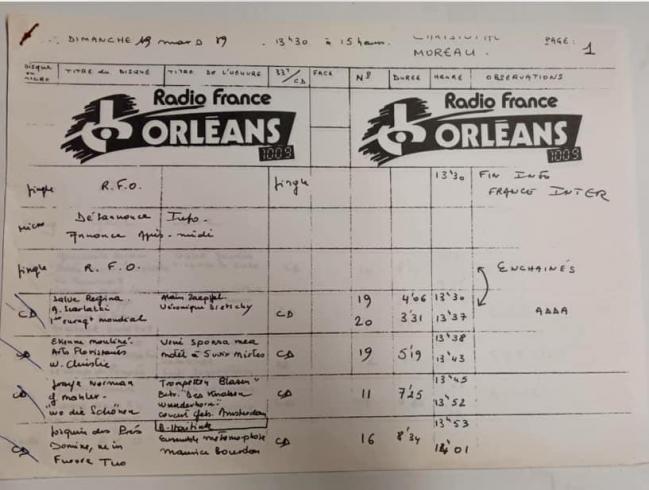 DIMANCHE 19 mars 89 . 13h30 à 15 heures. PAGE: 1
MOREAU.
TITRE du DISQUE TITRE DE L'OEUVRE 33T CD FACE N° DUREE HEURE OBSERVATIONS
Radio France
ORLÉANS
100.9
Radio France
ORLÉANS
100.9
jingle R.F.O. jingle 13h30 FIN INFO
FRANCE INTER
micro Désannonce Info.
Annonce Après-midi
jingle R.F.O. ENCHAINÉS
Salve Regina. Alain Zaepffel 19 4'06 13h30
CD A. Scarlatti Véronique Dietschy CD AADA
1er enregt mondial 20 3'31 13h37
Etienne Moulinié. Veni sponsa mea 13h38
Arts Florissants motet à 5 voix mixtes CD 19 5'19
W. Christie 13h43
Jessye Norman "Trompeten Blasen" 13h45
CD G. Mahler. "Des Knaben CD 11 7'25
"Wo die Schönen Wunderhorn" 13h52
Concert Geb. Amsterdam
Josquin des Prés B. Haitink 13h53
CD Domine, ne in Ensemble métamorphose CD 16 8'34
Furore Tuo Maurice Bourbon 14h01